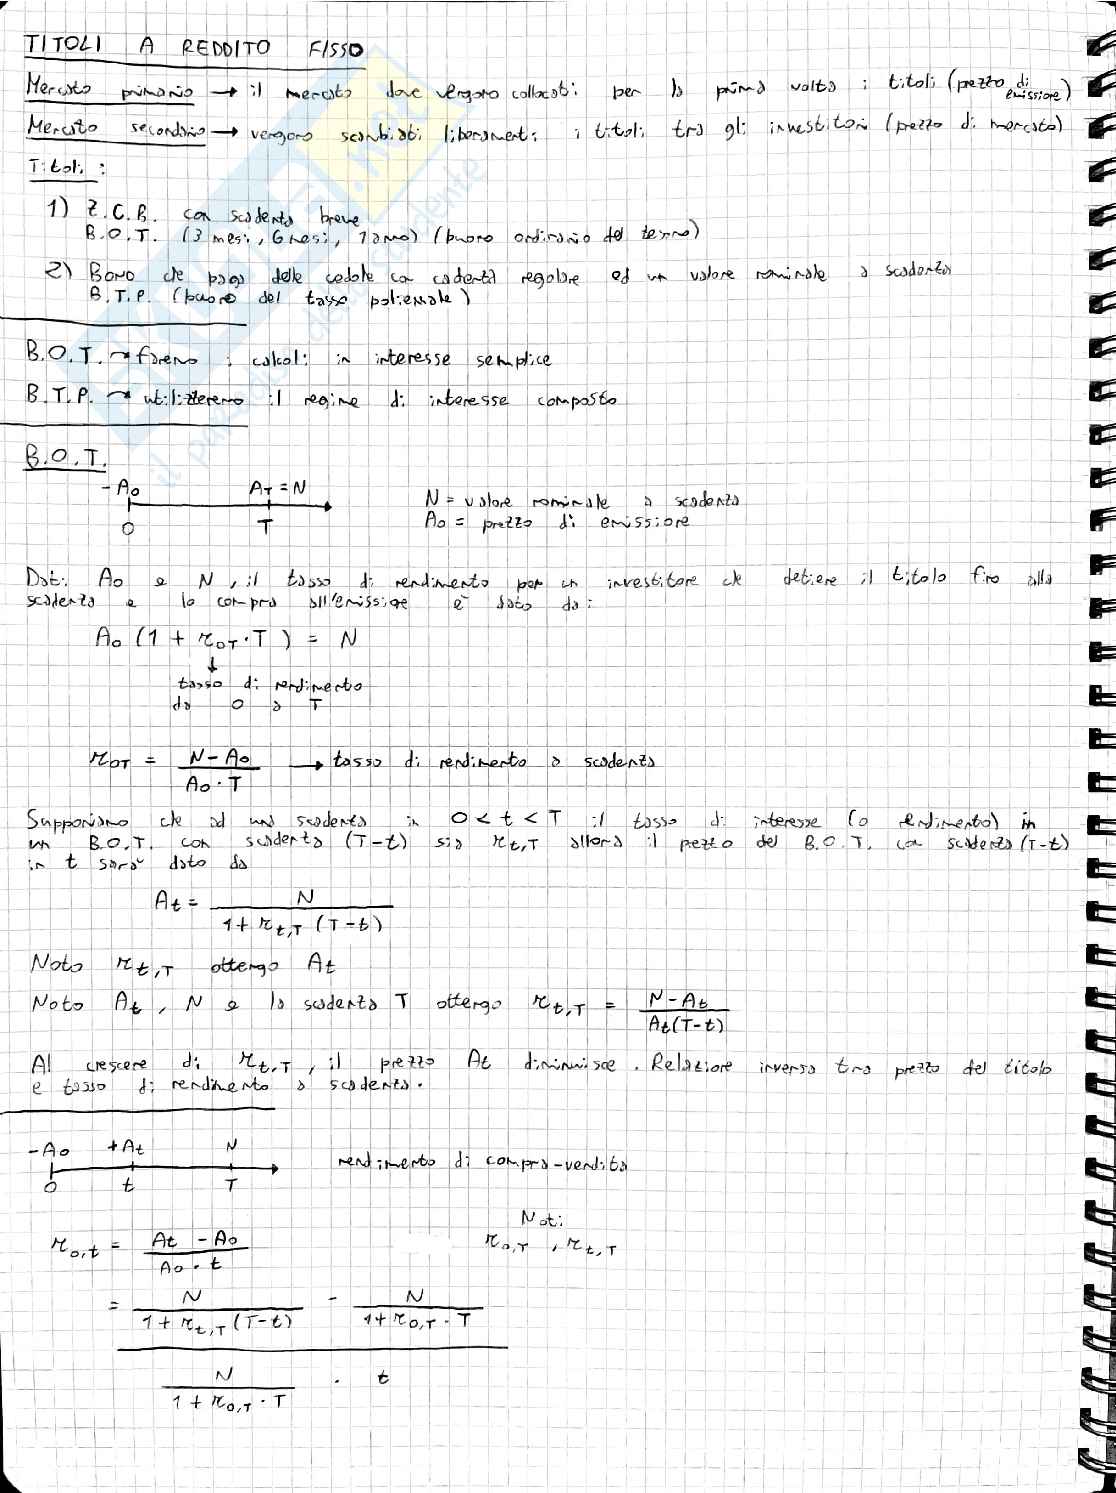 TITOLI A REDDITO FISSO
Mercato primario → il mercato dove vengono collocati per la prima volta i titoli (prezzo di emissione)
Mercato secondario → vengono scambiati liberamente i titoli tra gli investitori (prezzo di mercato)
Titoli:
1) Z.C.B. con scadenza breve
B.O.T. (3 mesi, 6 mesi, 1 anno) (buono ordinario del tesoro)
2) Bono che paga delle cedole con cadenza regolare ed un valore nominale a scadenza
B.T.P. (buono del tasso poliennale)
B.O.T. → faremo i calcoli in interesse semplice
B.T.P. → utilizzeremo il regime di interesse composto
B.O.T.
-A₀ A_T = N
0 T
N = valore nominale a scadenza
A₀ = prezzo di emissione
Dati A₀ e N, il tasso di rendimento per un investitore che detiene il titolo fino alla
scadenza e lo compra all'emissione è dato da:
A₀ (1 + r₀T · T) = N
↓
tasso di rendimento
da 0 a T
r₀T = (N - A₀) / (A₀ · T) → tasso di rendimento a scadenza
Supponiamo che ad una scadenza in 0 < t < T il tasso di interesse (o rendimento) in
un B.O.T. con scadenza (T-t) sia r_t,T allora il prezzo del B.O.T. con scadenza (T-t)
in t sarà dato da
A_t = N / (1 + r_t,T (T-t))
Noto r_t,T ottengo A_t
Noto A_t, N e la scadenza T ottengo r_t,T = (N - A_t) / (A_t (T-t))
Al crescere di r_t,T, il prezzo A_t diminuisce. Relazione inversa tra prezzo del titolo
e tasso di rendimento a scadenza.
-A₀ +A_t N
0 t T
rendimento di compra-vendita
r₀,t = (A_t - A₀) / (A₀ · t)
Noti
r₀,T , r_t,T
= N / (1 + r_t,T (T-t)) - N / (1 + r₀,T · T)
N / (1 + r₀,T · T) · t